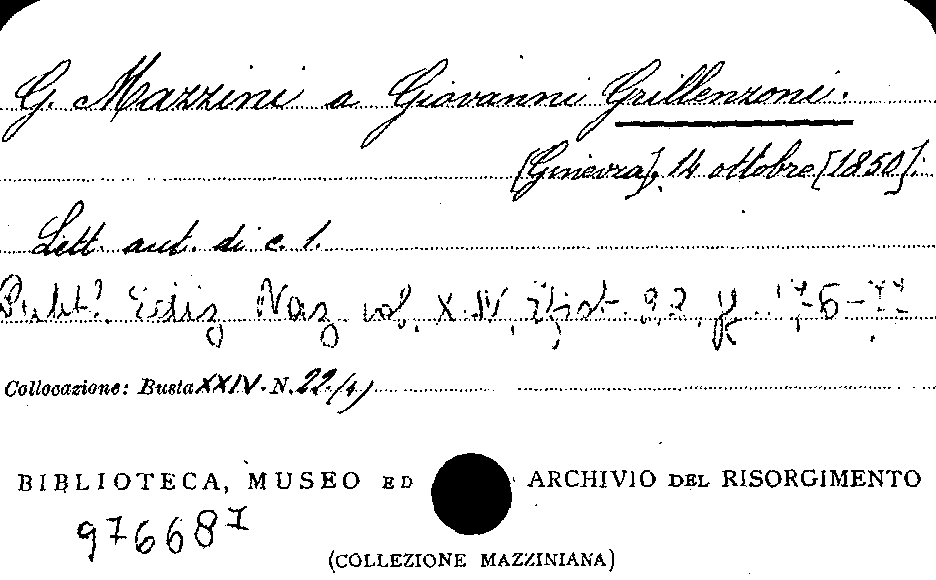 G. Mazzini a Giovanni Grillenzoni.
[Ginevra], 14 ottobre [1850].
Lett. aut. di c. 1.
Pubb? Ediz Naz vol. XIV,
Collocazione: Busta XXIV. N. 22.(4)
BIBLIOTECA, MUSEO ED ARCHIVIO DEL RISORGIMENTO
97668 I
(COLLEZIONE MAZZINIANA)